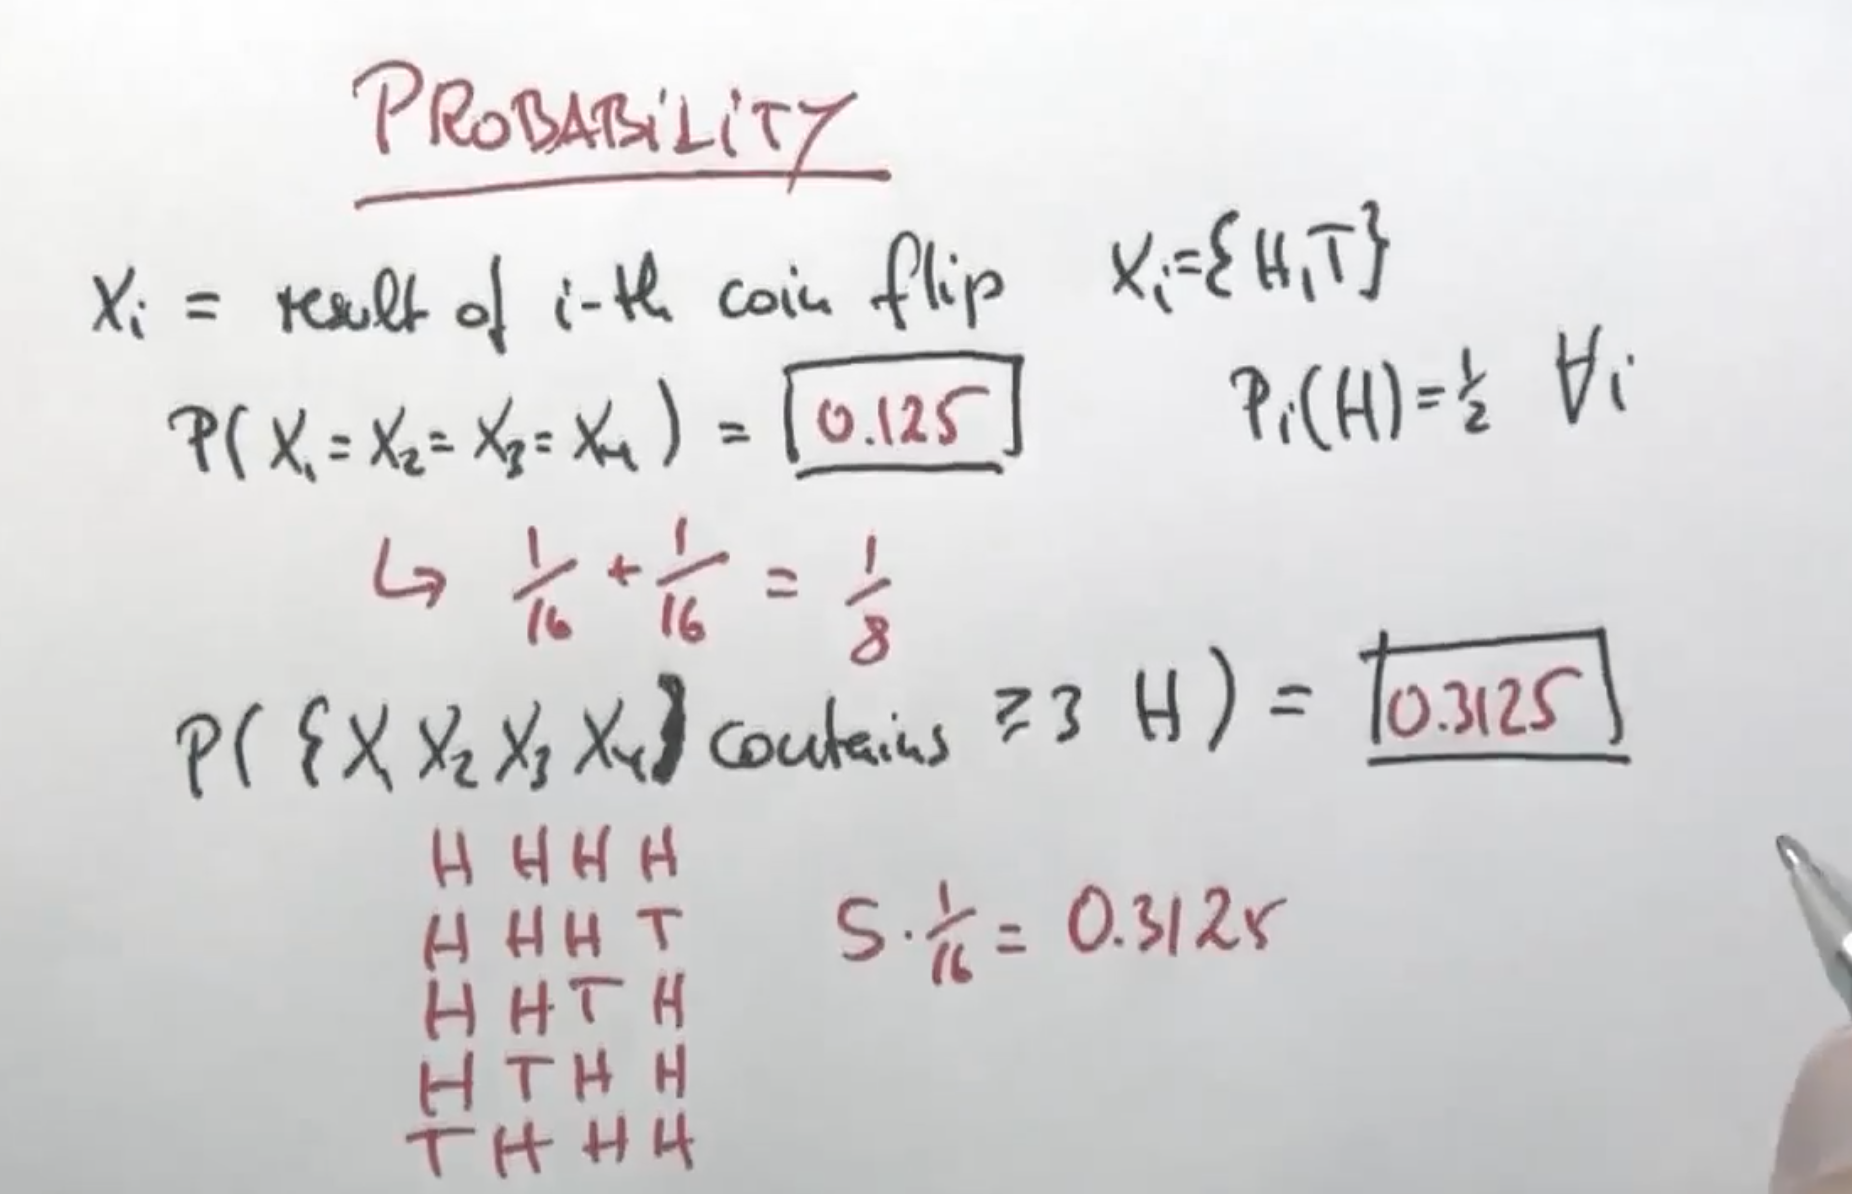 PROBABiLiTY
Xi = result of i-th coin flip Xi={H,T}
P(X1=X2=X3=X4) = 0.125 Pi(H)=1/2 ∀i
↳ 1/16 + 1/16 = 1/8
P({X1 X2 X3 X4} contains ≥3 H) = 0.3125
H H H H
H H H T 5·1/16 = 0.3125
H H T H
H T H H
T H H H